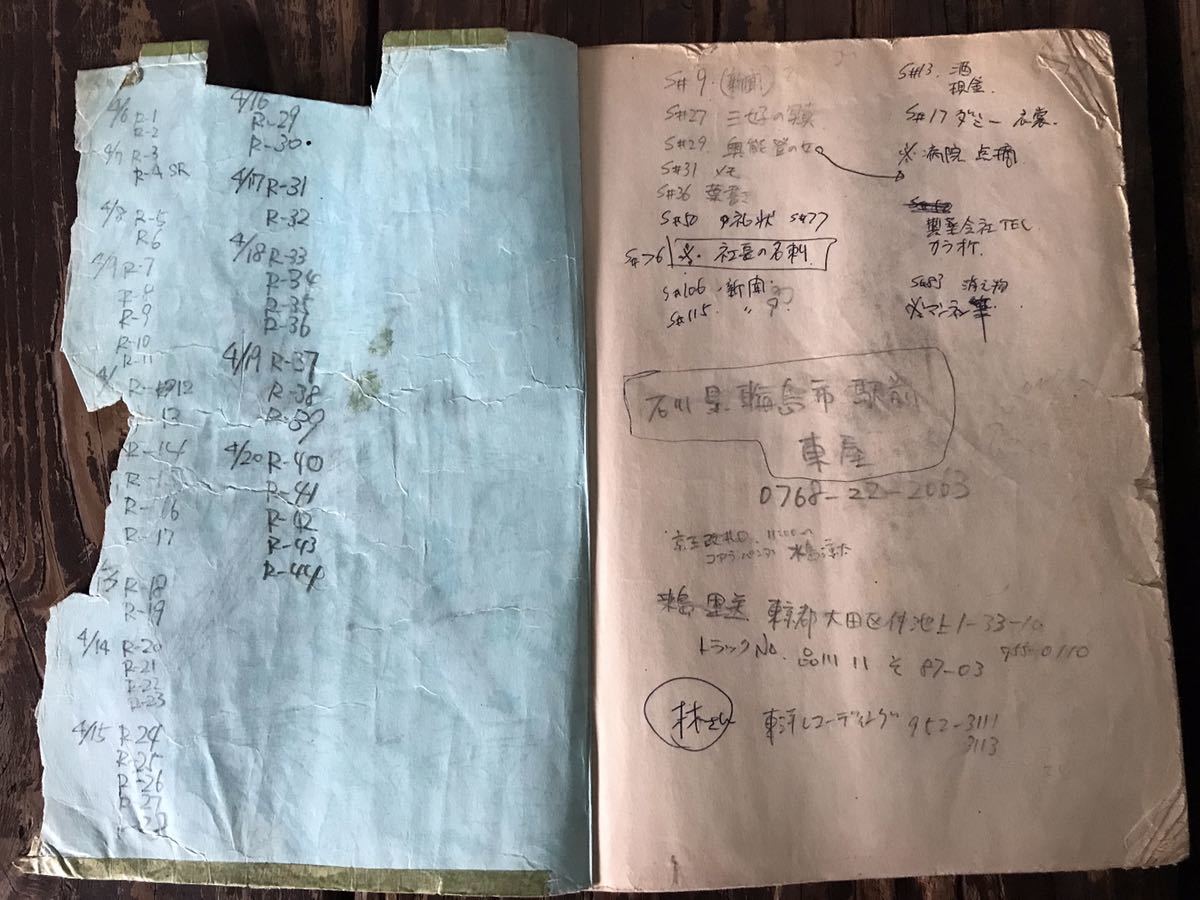 4/6 R-1
R-2
4/7 R-3
R-4 SR
4/8 R-5
R6
4/9 R-7
R-8
R-9
R-10
R-11
4/
R-12
13
R-14
R-1
R-16
R-17
R-18
R-19
4/14 R-20
R-21
R-22
R-23
4/15 R-24
R-25
R-26
R-27
4/16
R-29
R-30
4/17 R-31
R-32
4/18 R-33
R-34
R-35
R-36
4/19 R-37
R-38
R-39
4/20 R-40
R-41
R-42
R-43
R-44
S#9 (新聞)
S#27 三好の
S#29 奥能登の女
S#31 メモ
S#36 葉書
S#50 礼状 S#77
S#76 ※ 社長の名刺
S#106 新聞
S#115 〃
S#13 酒
現金
S#17 ダミー 衣裳
※病院 点滴
製薬会社 TEL
カラオケ
S#83 消え物
石川県輪島市駅前
東屋
0768-22-2003
京王改札口
コアラ・パンダ
東京都大田区仲池上1-33-10
トラックNo. 品川 11 そ 87-03
755-0110
林さん 東洋レコーディング 952-3111
3113